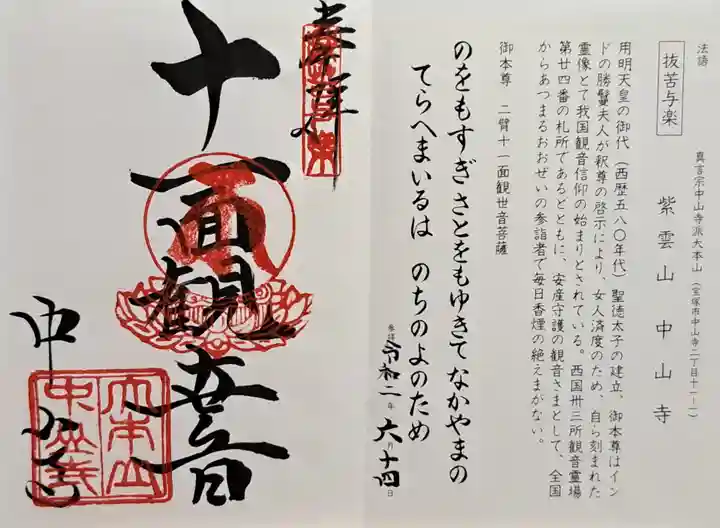 法語
抜苦与楽
真言宗中山寺派大本山 (宝塚市中山寺二丁目十一-一)
紫雲山中山寺
用明天皇の御代(西歴五八〇年代)聖徳太子の建立、御本尊はイン
ドの勝鬘夫人が釈尊の啓示により、女人済度のため、自ら刻まれた
霊像とて我国観音信仰の始まりとされている。西国卅三所観音霊場
第廿四番の札所であるとともに、安産守護の観音さまとして、全国
からあつまるおおぜいの参詣者で毎日香煙の絶えまがない。
御本尊 二臂十一面観世音菩薩
のをもすぎさとをもゆきてなかやまの
てらへまいるは のちのよのため
参拝 令和二年六月十四日
奉拝
十一面観世音
中山寺
大本山
中山寺